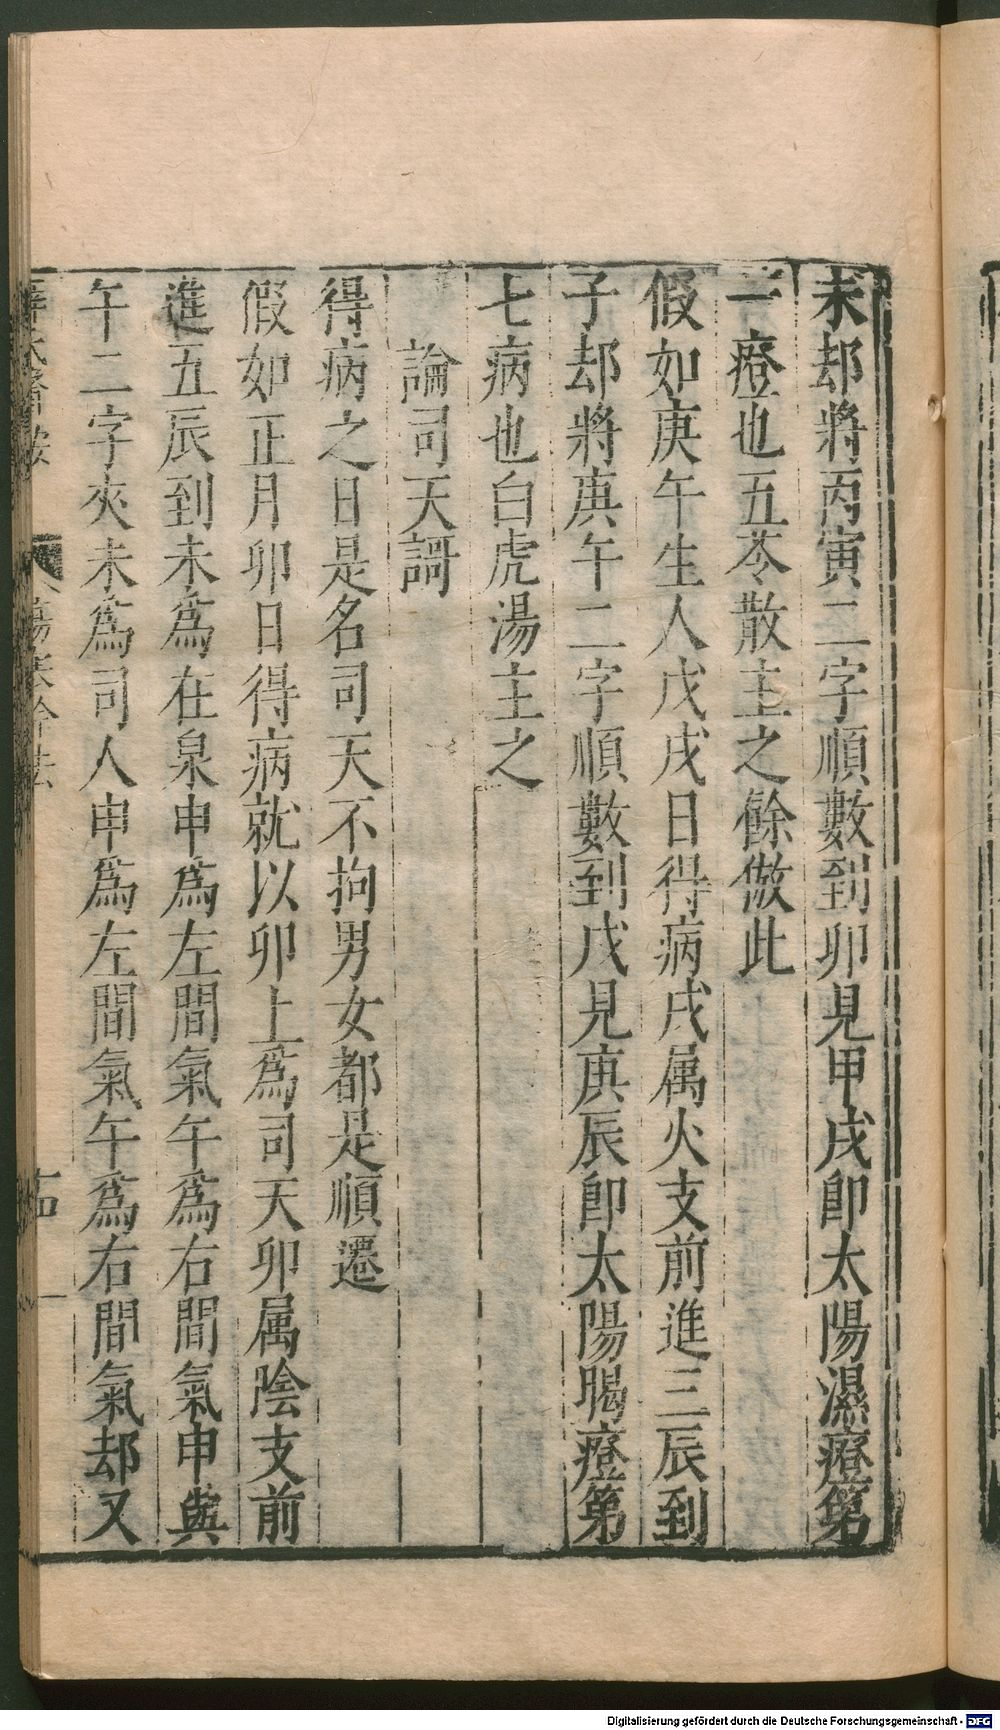 未却將丙寅二字順數到卯見甲戌卽太陽濕證第
一證也五苓散主之餘倣此
假如庚午生人戊戌日得病戌属火支前進三辰到
子却將庚午二字順數到戌見庚辰卽太陽暍證第
七病也白虎湯主之
論司天謌
得病之日是名司天不拘男女都是順遷
假如正月卯日得病就以卯上爲司天卯属陰支前
進五辰到未爲在泉申爲左間氣午爲右間氣申與
午二字夾未爲司人申爲左間氣午爲右間氣却又
十四
Digitalisierung gefördert durch die Deutsche Forschungsgemeinschaft - DFG